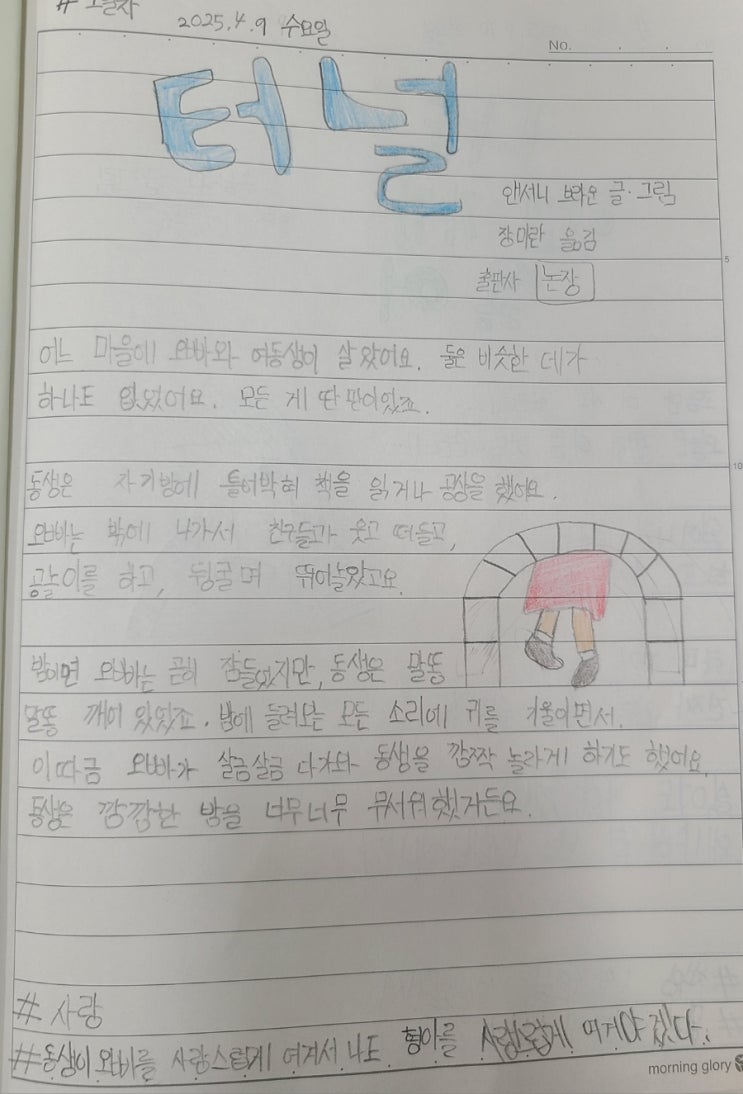 #
2025.4.9 수요일
No.
터널
앤서니 브라운 글·그림
장미란 옮김
출판사 논장
5
어느 마을에 오빠와 여동생이 살았어요. 둘은 비슷한 데가
하나도 없었어요. 모든 게 딴판이었죠.
10
동생은 자기방에 틀어박혀 책을 읽거나 공상을 했어요.
오빠는 밖에 나가서 친구들과 웃고 떠들고,
공놀이를 하고, 뒹굴며 뛰어놀았고요.
밤이면 오빠는 곤히 잠들었지만, 동생은 말똥
말똥 깨어 있었죠. 밤에 들려오는 모든 소리에 귀를 기울이면서.
이따금 오빠가 살금살금 다가와 동생을 깜짝 놀라게 하기도 했어요.
동생은 깜깜한 밤을 너무너무 무서워했거든요.
# 사랑
#동생이 오빠를 사랑스럽게 여겨서 나도 형아를 사랑스럽게 여겨야겠다.
morning glory